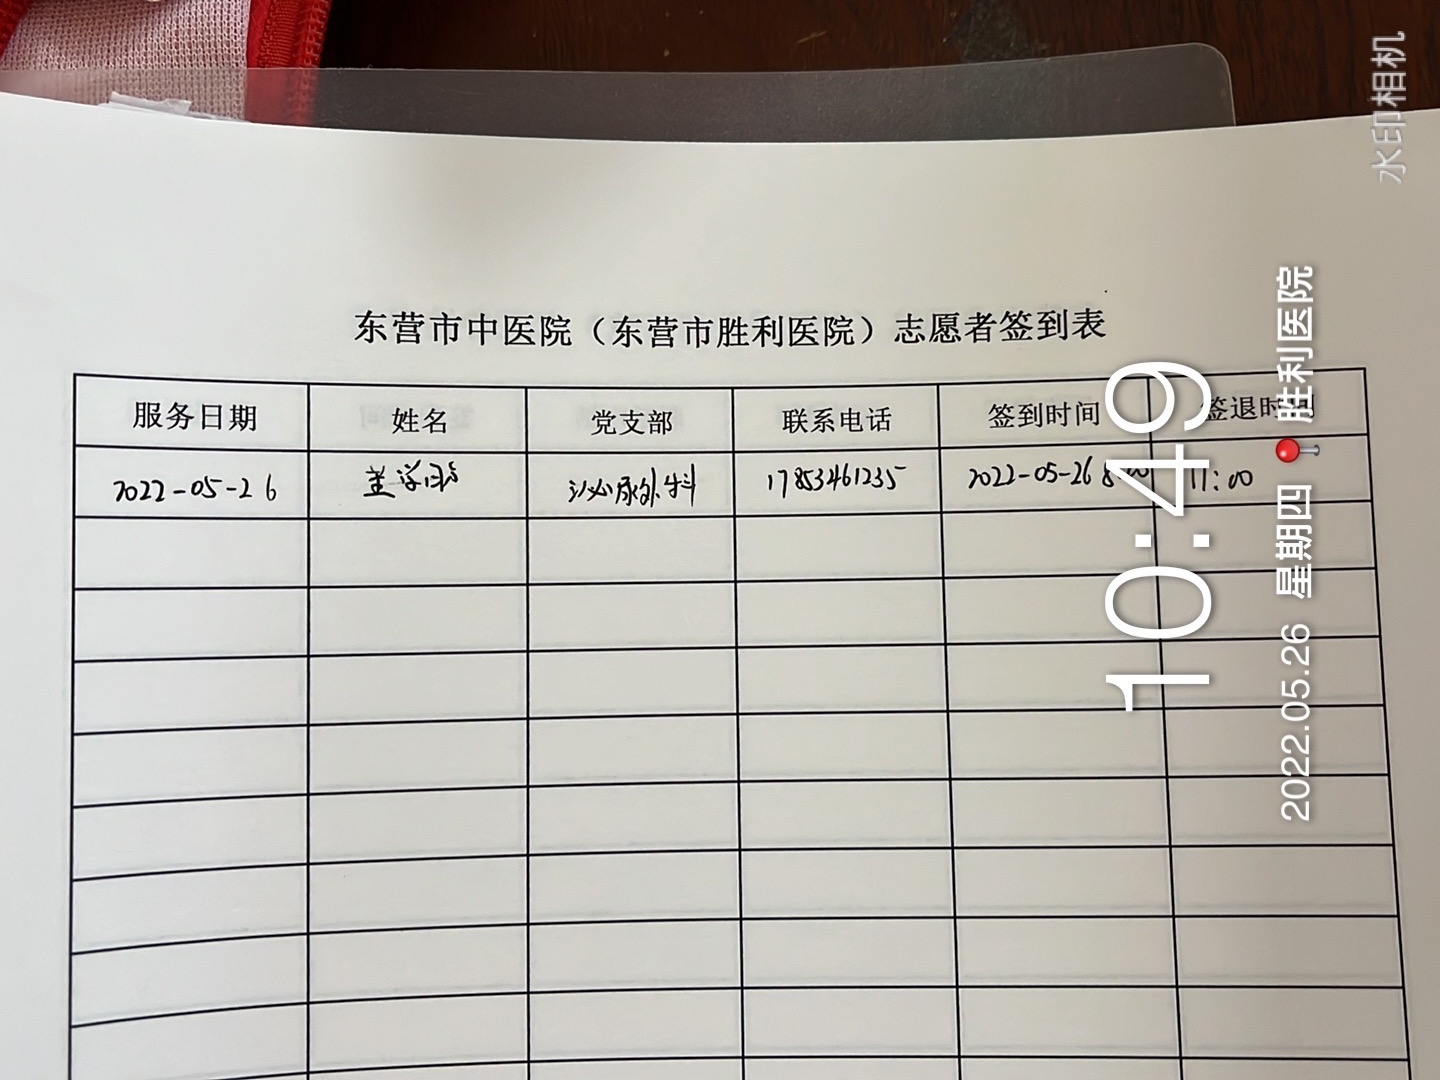 东营市中医院（东营市胜利医院）志愿者签到表
服务日期 姓名 党支部 联系电话 签到时间 签退时间
2022-05-26 泌尿外科 17853461235 2022-05-26 8:00 11:00
水印相机
10:49
2022.05.26 星期四 胜利医院